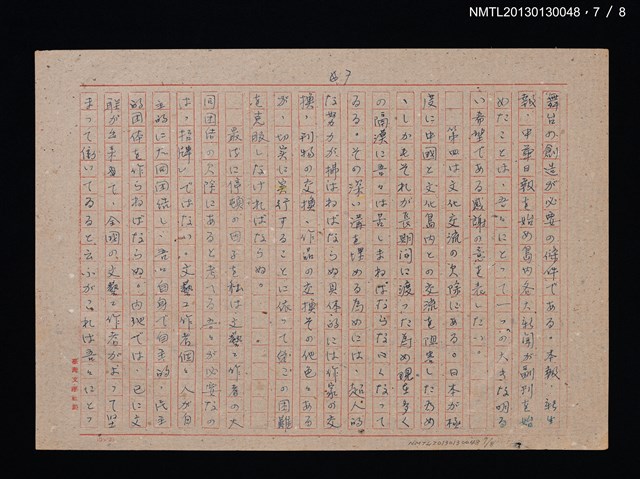 NMTL20130130048，7 / 8
舞台の創造が必要の條件である。本報、新生
報、中華日報を始め島内各大新聞が副刊を始
めたことは、吾々にとって一つの大きな明る
い希望である感謝の意を表したい。
第四は文化交流の欠除にある。日本が極
度に中國と文化島内との交流を阻害したため
、しかもそれが長期間に渡った為め現在多く
の隔漠に吾々は苦しまねばならなくなって
ゐる。その深い溝を埋める為めには、超人的
な努力が拂はねばならぬ具体的には作家の交
換、刊物の交換、作品の交換その他色々ある
が、切実に実行することに依って凡ての困難
を克服しなければならぬ。
最後に停頓の因子を私は文藝工作者の大
同團結の欠除にあると考へる吾々が必要なの
は、招牌ではない。文藝工作者個々人が自
主的に大同團結し、吾々自身で自主的、民主
的團体を作らねばならぬ。内地では、已に文
聯が出來て、全國の文藝工作者がよって堅
まって働いてゐると云ふがこれは吾々にとっ
臺灣文藝社
NMTL20130130048 7/8